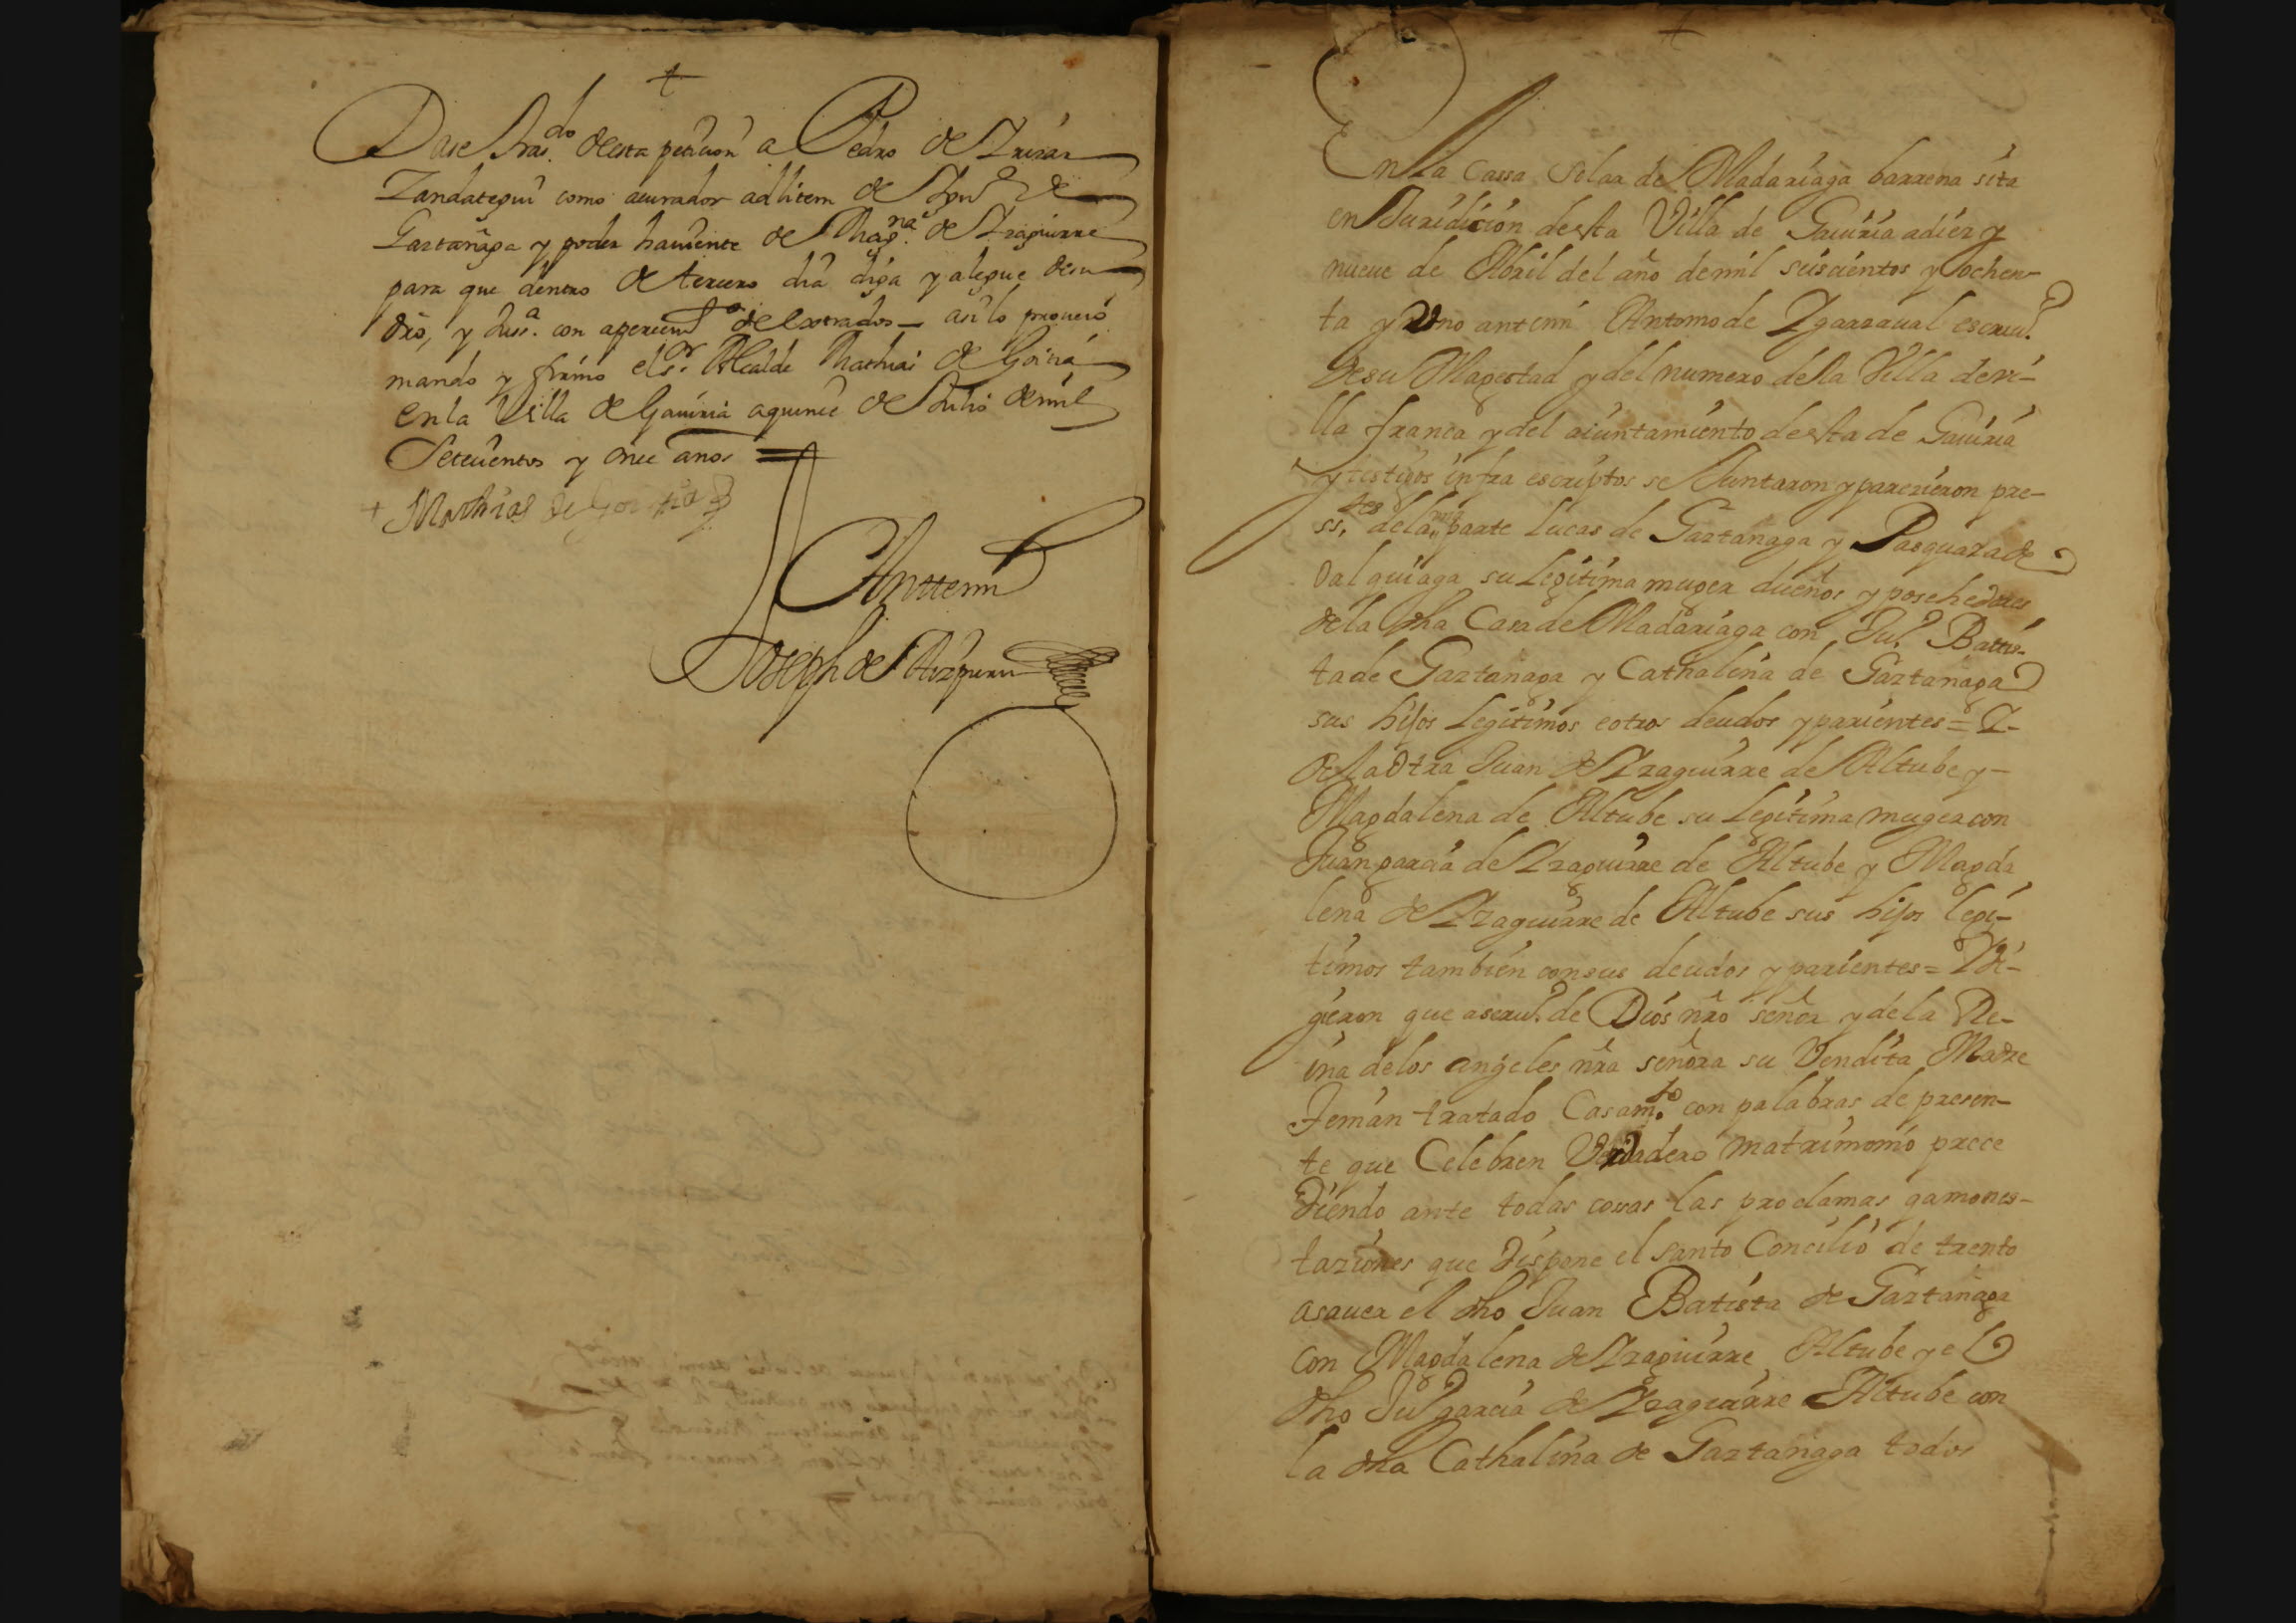 Dase tras.do de esta peticion a Pedro de Irizar
Zandategui como curador adlitem de
Gaztañaga y poder haviente de Mag.na de Izaguirre
para que dentro de tercero dia diga y alegue de su
dro, y Juss.a con apercevim.to de estrados asi lo proveio
mando y firmo el s.or Alcalde Mathias de Goitia
en la Villa de Gaviria a quince de Julio de mil
Setecientos y once años
Mathias de Goitia
Anttemi
Joseph de Aizpuru
En la Cassa Solar de Madariaga barrena sita
en Juridicion desta Villa de Gaviria a diez y
nueve de Abril del año de mil seiscientos y ochen-
ta y Uno antemi Antonio de Ygarzaval escriu.o
de su Magestad y del numero de la Villa de vi-
lla franca y del aiuntamiento desta de Gaviria
y testigos infra escriptos se Juntaron y parezieron pre-
ss.tes de la una parte Lucas de Gaztañaga y Pasquala de
Dalguiaga su Legitima muger dueños y posehedores
de la dha Casa de Madariaga con Ju.o Battis-
ta de Gaztañaga y Cathalina de Gaztañaga
sus hijos Legitimos e otros deudos y parientes = Y
de la Otra Juan de Yzaguirre de Altube y
Magdalena de Altube su Legitima muger con
Juan garcia de Yzaguirre de Altube y Magda
lena de Yzaguirre de Altube sus hijos legi-
timos tambien con sus deudos y parientes = Y di-
geron que a seru.o de Dios nro señor y de la Re-
ina de los angeles nra señora su Vendita Madre
Tenian tratado Casam.to con palabras de presen-
te que Celebren Verdadero matrimonio prece
diendo ante todas cosas las proclamas y amones-
taziones que dispone el santo Concilio de trento
asaver el dho Juan Batista de Gaztañaga
con Magdalena de Yzaguirre Altube y el
dho Ju.o garcia de Yzaguirre Altube con
la dha Cathalina de Gaztañaga todos